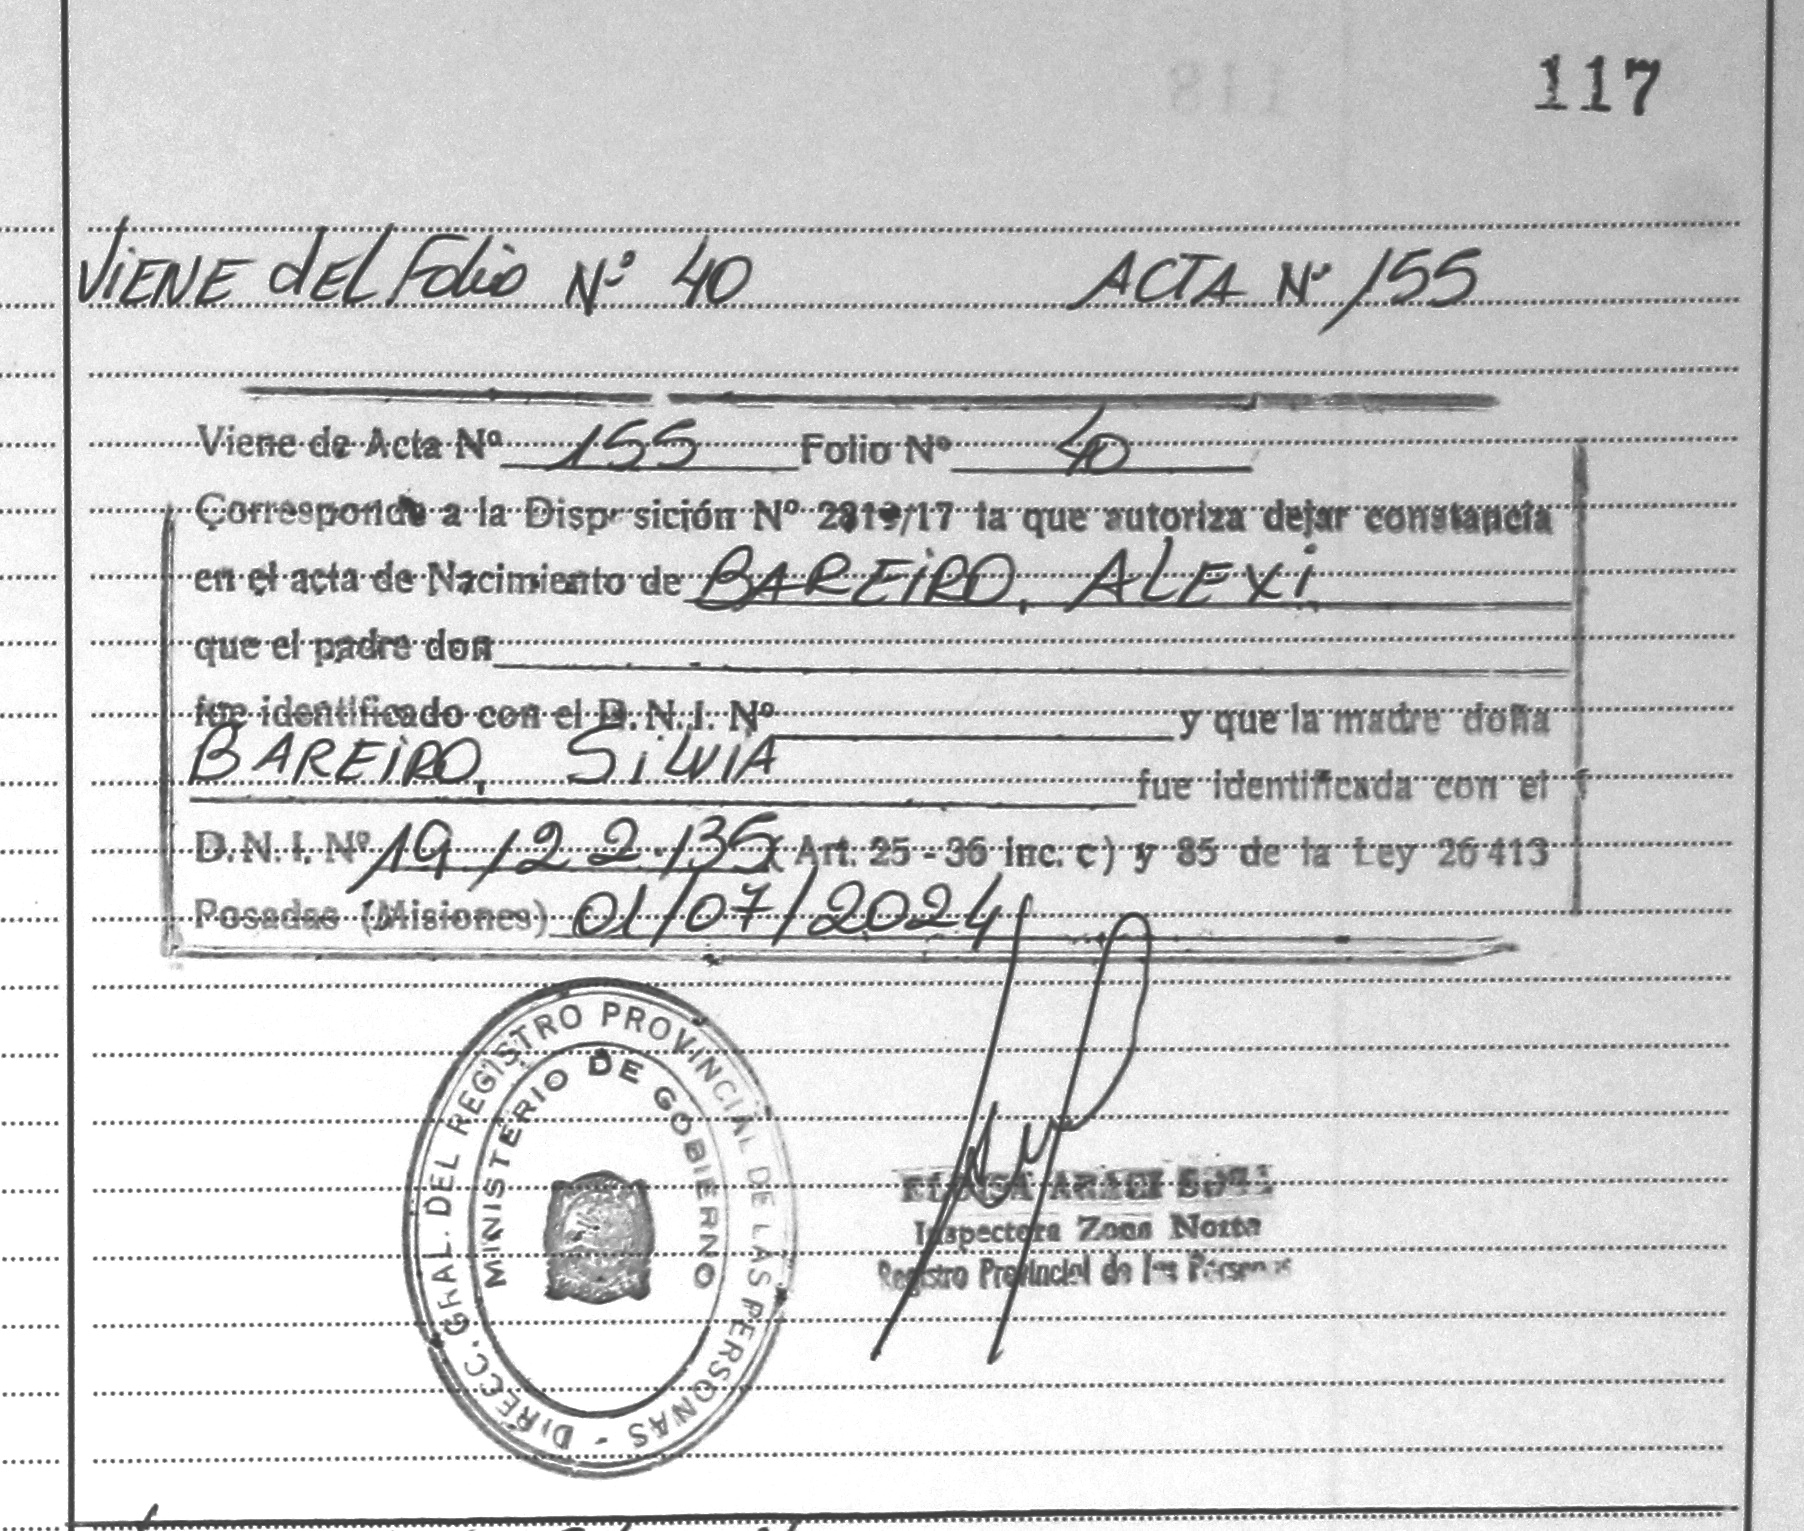 117
VIENE DEL Folio Nº 40 ACTA Nº 155
Viene de Acta Nº 155 Folio Nº 40
Corresponde a la Disposición Nº 2819/17 la que autoriza dejar constancia
en el acta de Nacimiento de BAREIRO, ALEXI
que el padre don
fue identificado con el D.N.I. Nº y que la madre doña
BAREIRO, SILVIA fue identificada con el
D.N.I. Nº 19 122.135 (Art. 25 - 36 inc. c) y 85 de la Ley 26413
Posadas (Misiones) 01/07/2024
DIRECC. GRAL. DEL REGISTRO PROVINCIAL DE LAS PERSONAS -
MINISTERIO DE GOBIERNO
Inspectora Zona Norte
Registro Provincial de las Personas